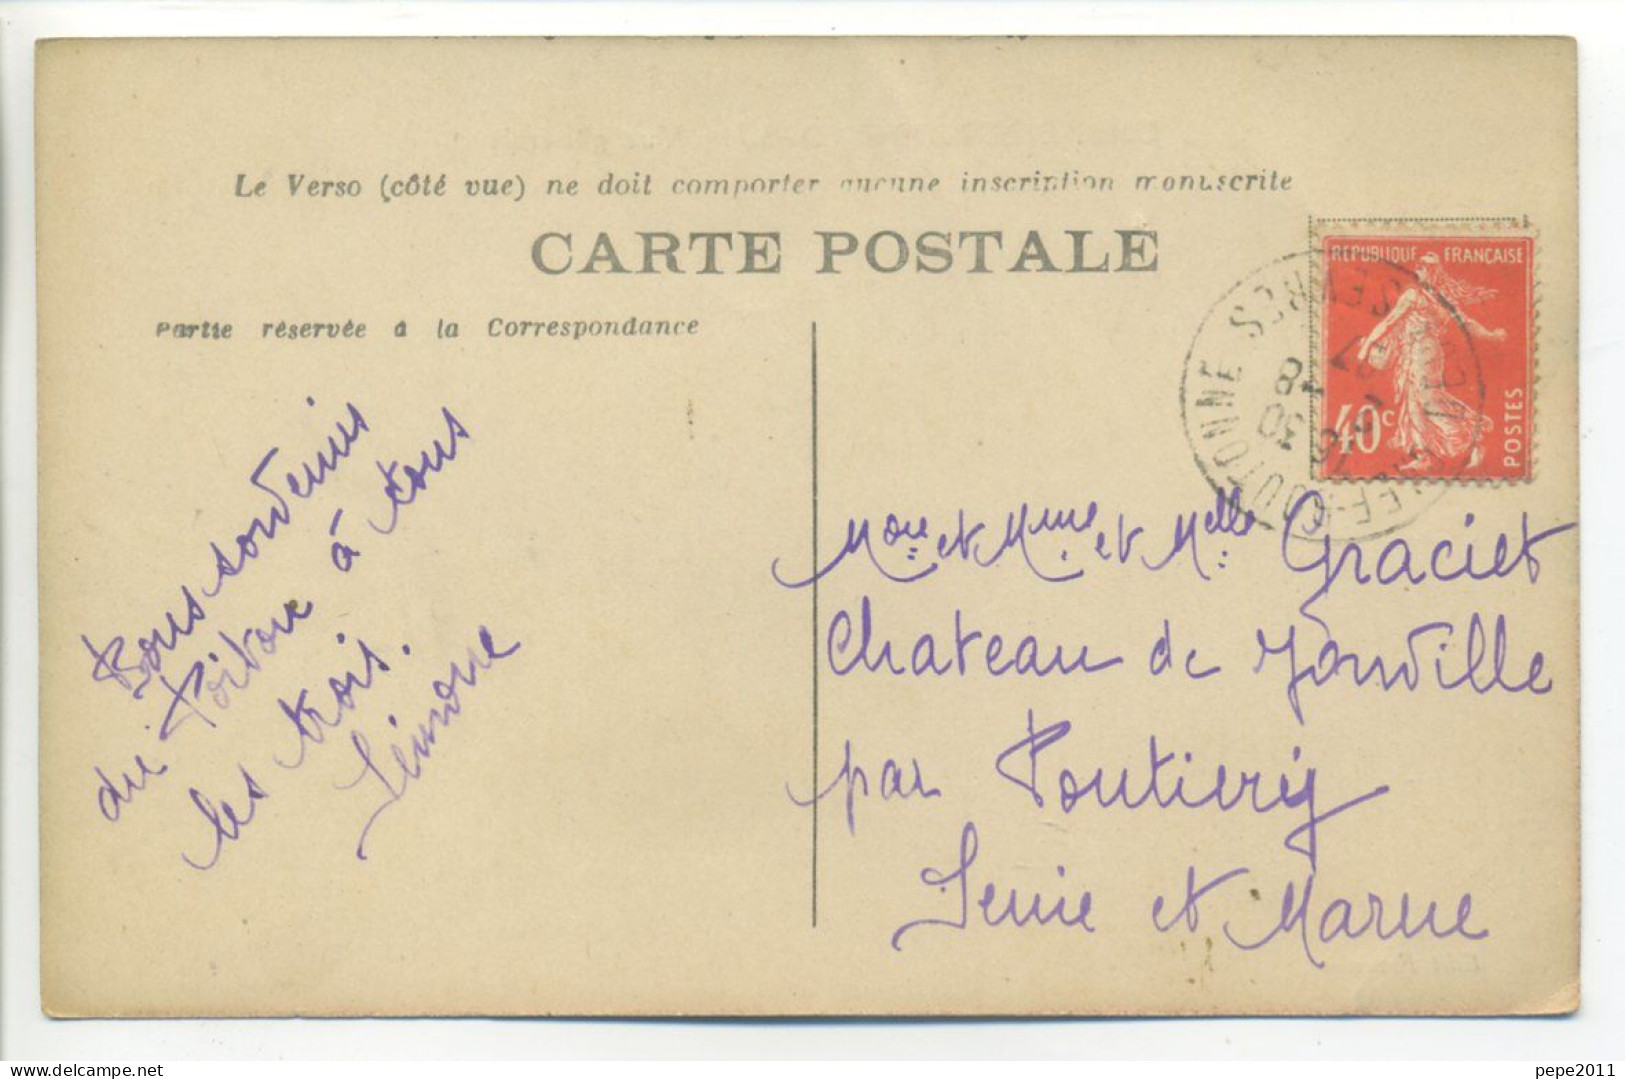 Le Verso (côté vue) ne doit comporter aucune inscription manuscrite
CARTE POSTALE
Partie réservée à la Correspondance
REPUBLIQUE FRANÇAISE
40c
POSTES
SEVRES
Bons souvenirs
du Poitou à tous
les trois.
Simone
Mme et Melle Graciet
Chateau de
par
Seine et Marne
delcampe.net
pepe2011